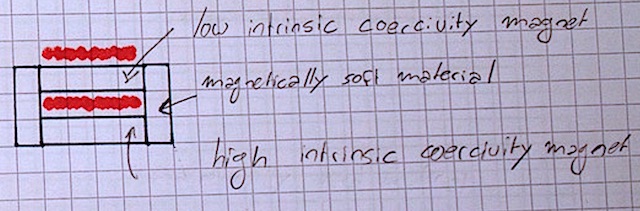 low intrinsic coercivity magnet
magnetically soft material
high intrinsic coercivity magnet